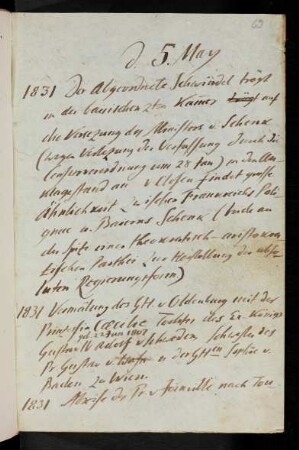 63
d. 5. May
1831 Der Abgeordnete Schwindel trägt
in der bayrischen 2ten Kamer trägt auf
die Versezung des Ministers v Schenk
(wegen Verlezung der Verfassung durch die
Censurverordnung vom 28 Jan) in den An-
klagestand an v Closen findet große
Ähnlichkeit zwischen Frankreichs Poli-
gnac u. Baierns Schenk (beide an
der Spitze einer theokratisch-aristokra-
tischen Parthei zur Herstellung der abso-
luten Regierungsform)
1831 Vermälung des GH v Oldenburg mit der
Prinzeßin Cäcilie Tochter des Ex Königs
geb. 22 Jun 1807
Gustav IV Adolf v Schweden Schwester des
Pr Gustav v Wasa u der GHgin Sophie v
Baden zu Wien.
1831 Abreise des Pr v Joinville nach Tou-